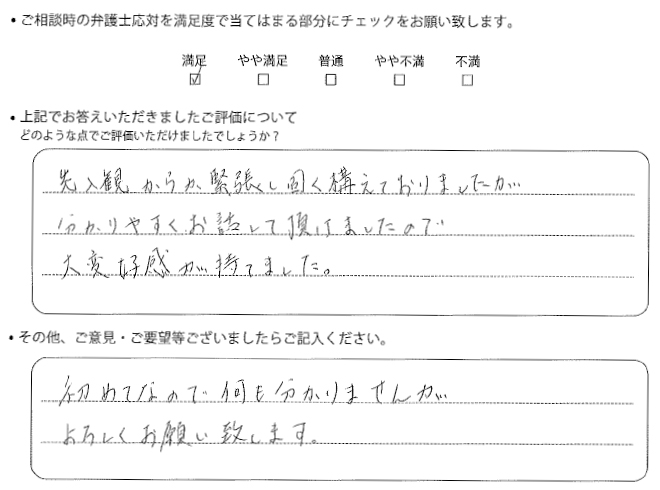 • ご相談時の弁護士応対を満足度で当てはまる部分にチェックをお願い致します。
満足 やや満足 普通 やや不満 不満
☑ □ □ □ □
• 上記でお答えいただきましたご評価について
どのような点でご評価いただけましたでしょうか?
先入観からか緊張し固く構えておりましたが
分かりやすくお話して頂けましたので
大変好感が持てました。
• その他、ご意見・ご要望等ございましたらご記入ください。
初めてなので何も分かりませんが
よろしくお願い致します。